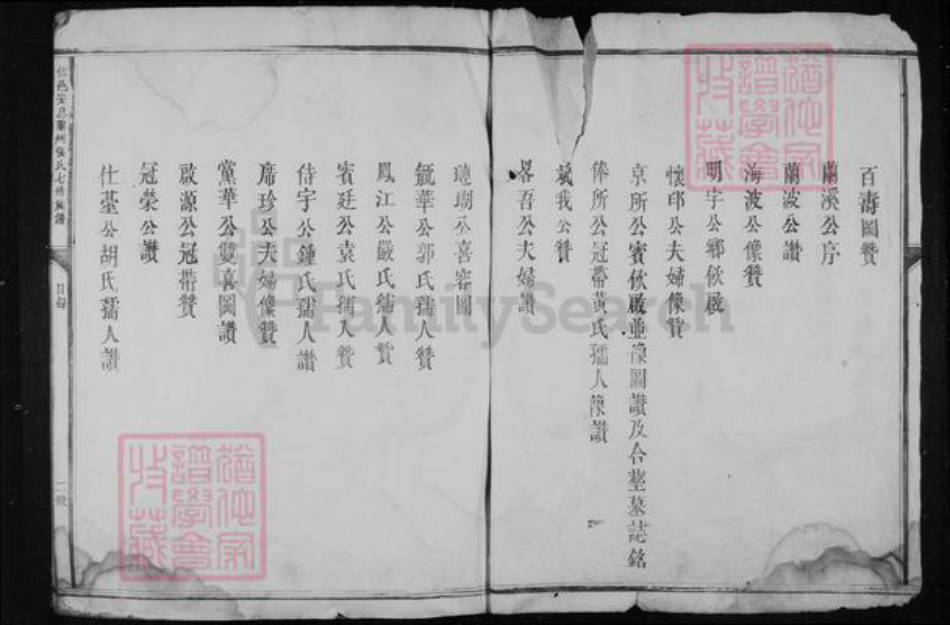 百壽圖贊
蘭溪公序
蘭波公讚
海波公像贊
明宇公鄉飲啟
懷邙公夫婦像贊
京所公賓飲啟並像圖讚及合塟墓誌銘
俸所公冠帶黃氏孺人像讚
我公贊
吾公夫婦讚
公喜容圖
毓華公郭氏孺人贊
鳳江公嚴氏孺人贊
賓廷公袁氏孺人贊
待宇公鍾氏孺人讚
席珍公夫婦像贊
黨華公雙喜圖讚
啟源公冠帶贊
冠榮公讚
仕蓥公胡氏孺人讚
氏七修族譜
目錄
二號
FamilySearch